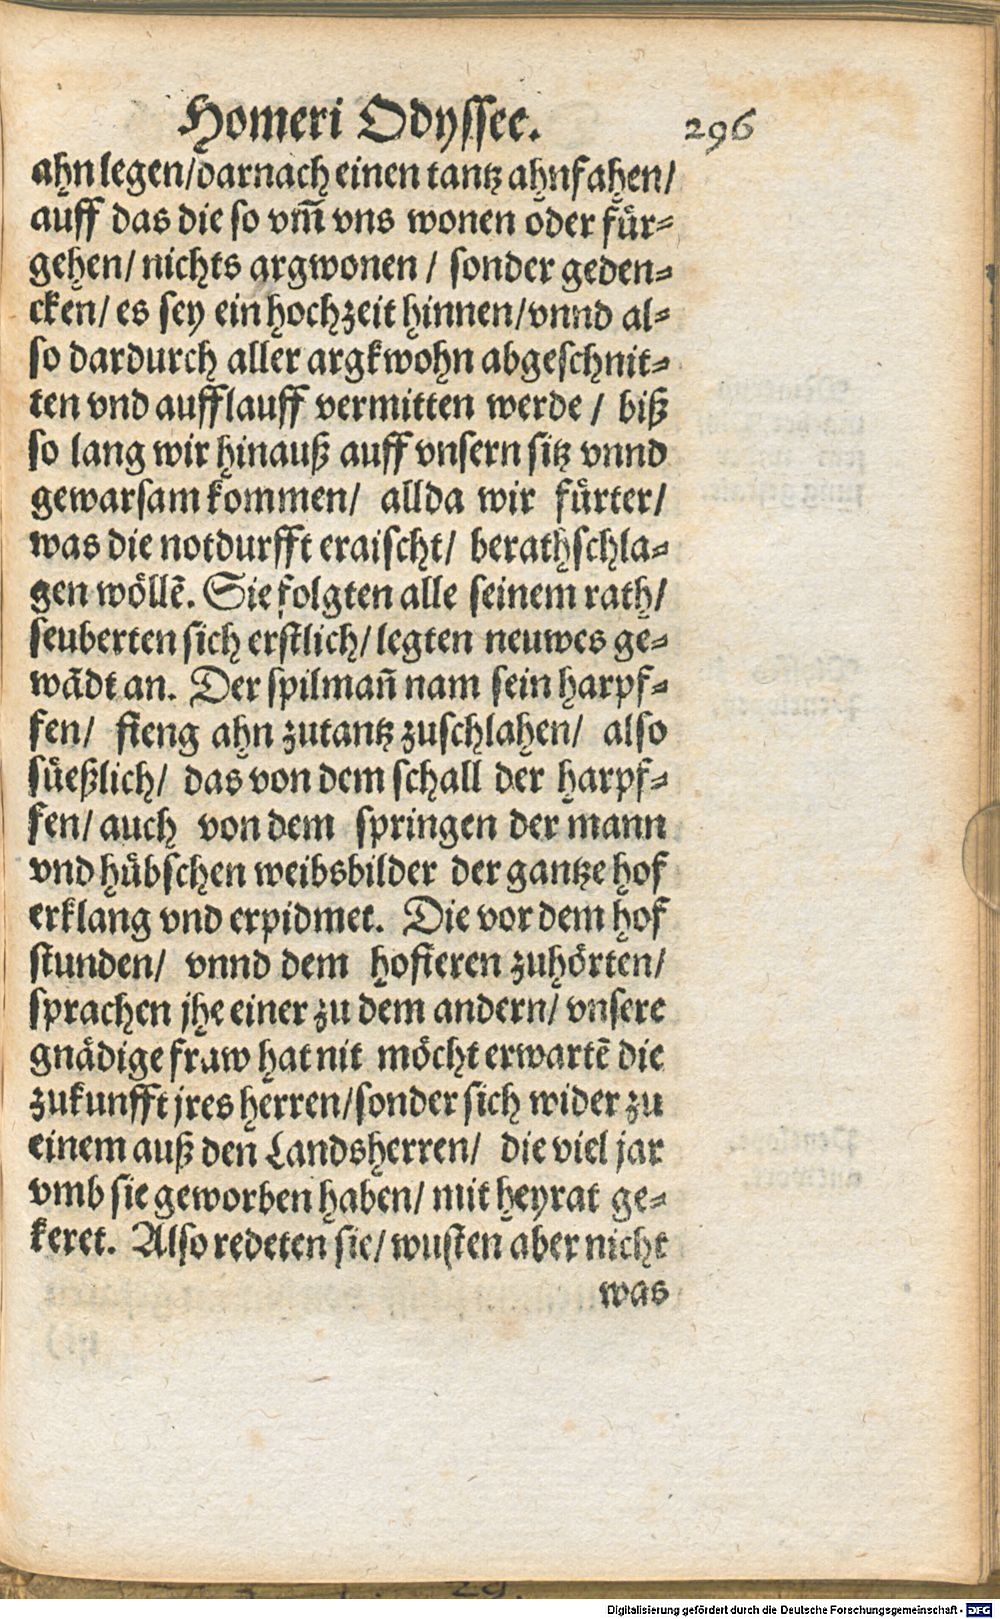 Homeri Odyssee. 296
ahn legen/ darnach einen tantz ahnfahen/
auff das die so vm̃ vns wonen oder fuͤr⸗
gehen/ nichts argwonen / sonder geden⸗
cken/ es sey ein hochzeit hinnen/ vnnd al⸗
so dardurch aller argkwohn abgeschnit⸗
ten vnd aufflauff vermitten werde / biß
so lang wir hinauß auff vnsern sitz vnnd
gewarsam kommen/ allda wir fuͤrter/
was die notdurfft eraischt/ berathschla⸗
gen woͤllẽ. Sie folgten alle seinem rath/
seuberten sich erstlich/ legten neuwes ge⸗
wãdt an. Der spilmañ nam sein harpf⸗
fen/ fieng ahn zutantz zuschlahen/ also
suͤeßlich/ das von dem schall der harpf⸗
fen/ auch von dem springen der mann
vnd huͤbschen weibsbilder der gantze hof
erklang vnd erpidmet. Die vor dem hof
stunden/ vnnd dem hofieren zuhoͤrten/
sprachen jhe einer zu dem andern/ vnsere
gnaͤdige fraw hat nit moͤcht erwartẽ die
zukunfft jres herren/ sonder sich wider zu
einem auß den Landsherren/ die viel jar
vmb sie geworben haben/ mit heyrat ge⸗
keret. Also redeten sie/ wusten aber nicht
was
Digitalisierung gefördert durch die Deutsche Forschungsgemeinschaft - DFG